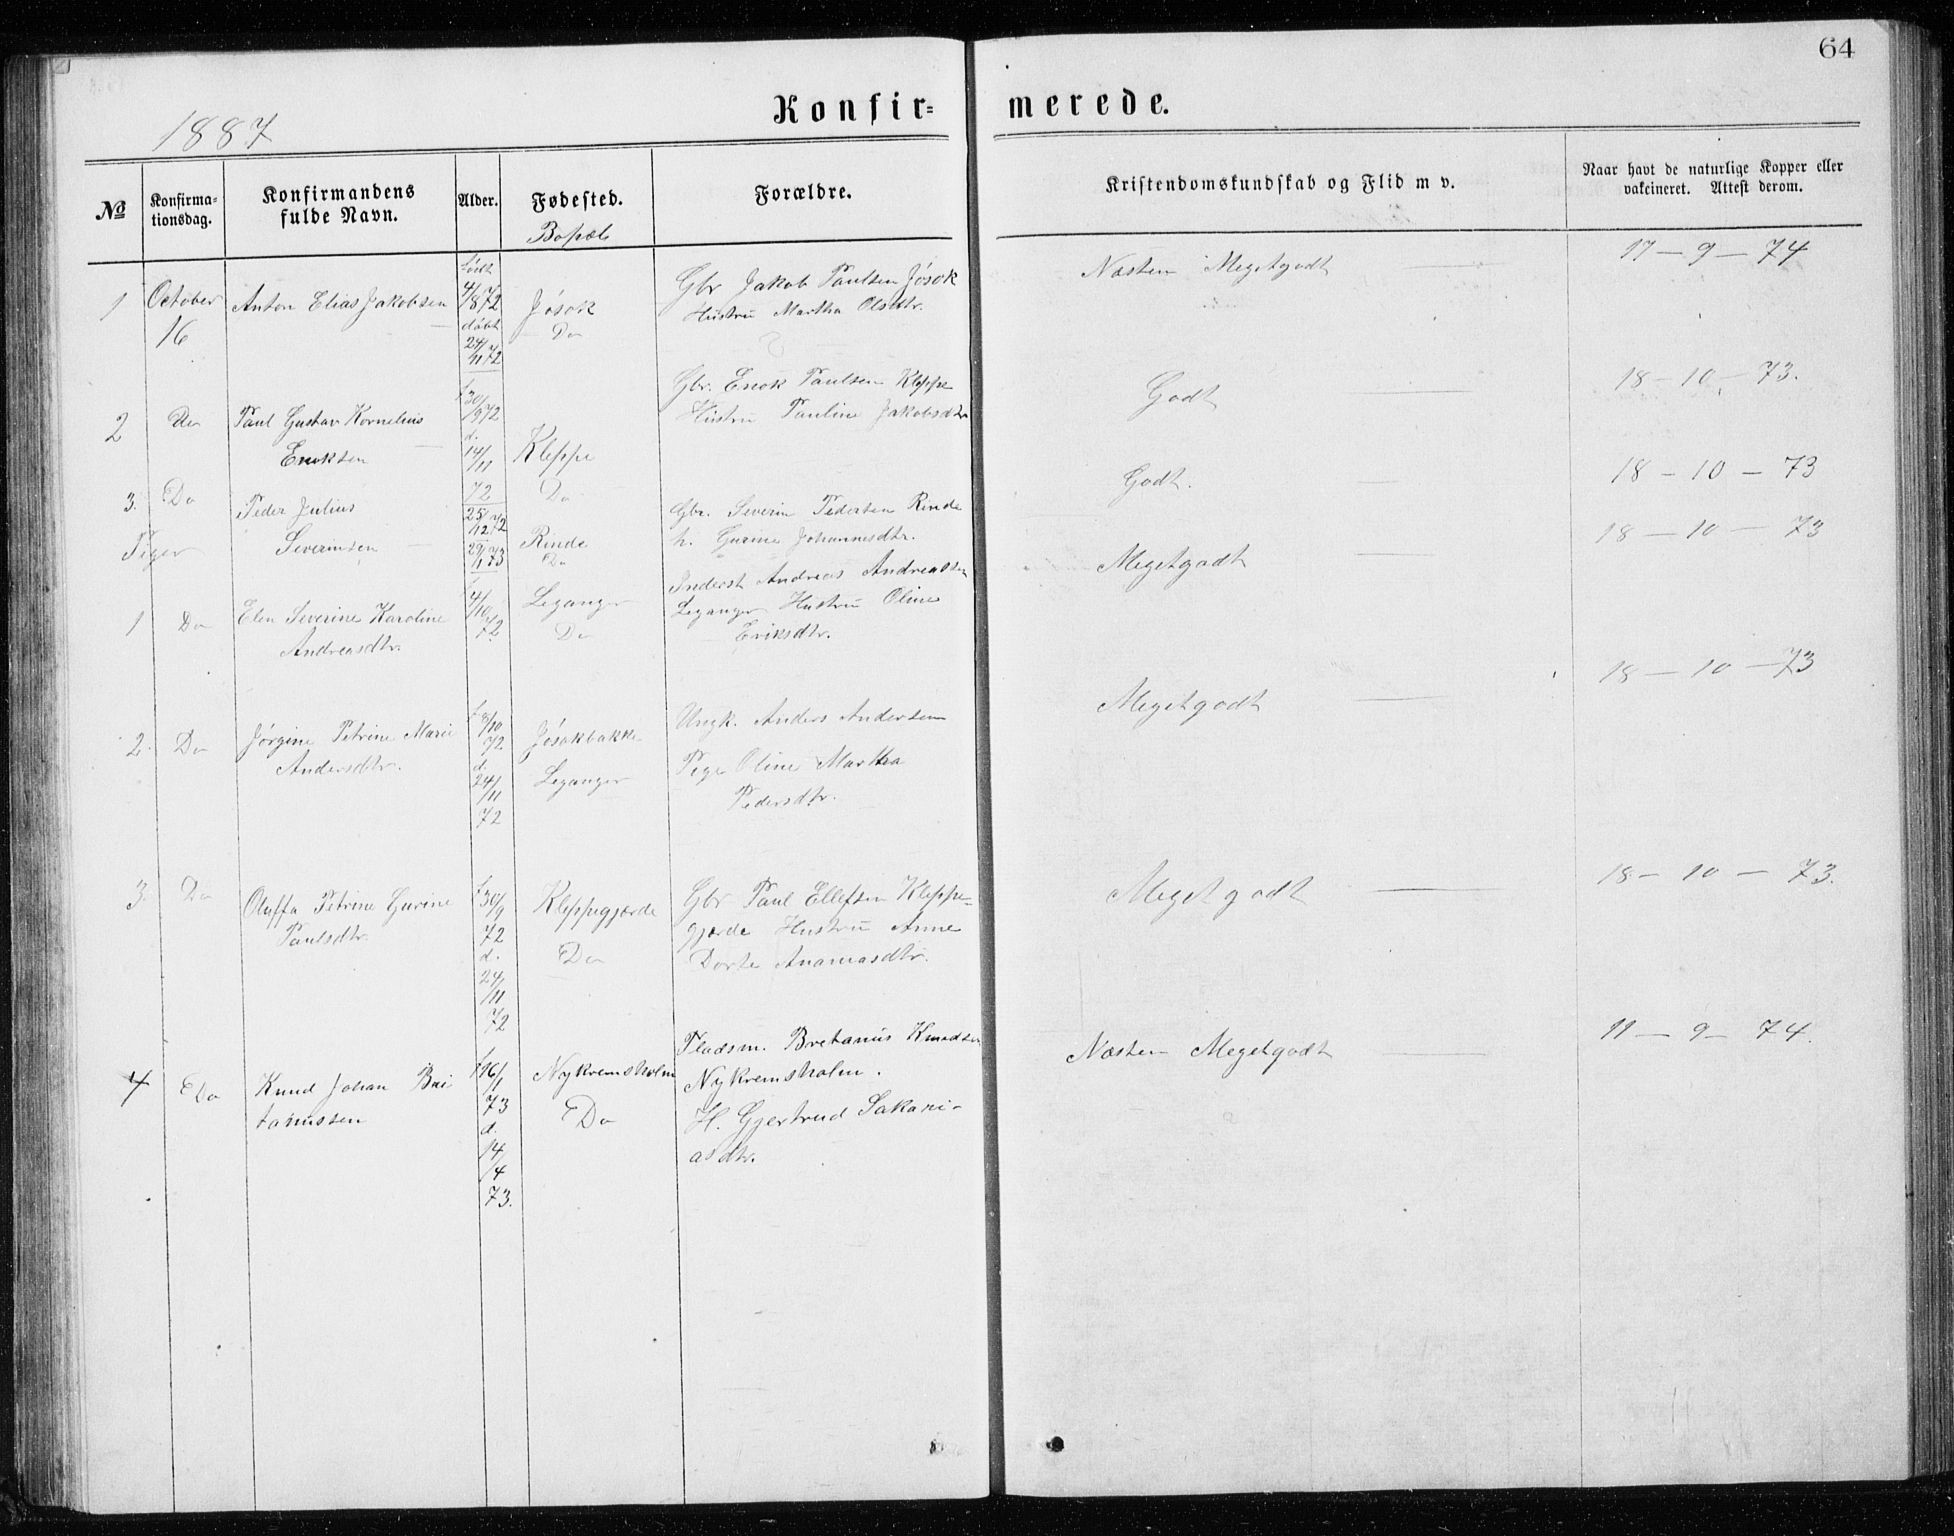 64
Konfir= merede.
1887
№
Konfirma-
tionsdag.
Konfirmandens
fulde Navn.
Alder.
Fødested.
Bopæl
Forældre.
Kristendomskundskab og Flid m v.
Naar havt de naturlige Kopper eller
vakcineret. Attest derom.
1
October
16
Anton Elias Jakobsen
født
4/8 72
døbt
24/11 72
Jøsok
Do
Gbr Jakob Paulsen Jøsok
Hustru Martha Olsdtr.
Næsten Megetgodt
17 - 9 - 74
2
Do
Paul Gustav Kornelius
Enoksen
f 30/9 72
d.
14/11
72
Kleppe
Do
Gbr. Enok Paulsen Kleppe
Hustru Pauline Jakobsdtr
Godt
18 - 10 - 73.
3.
Do
Peder Julius
Severinsen
25/12 72
29/1 73
Rinde
Do
Gbr. Severin Pedersen Rinde
h. Gurine Johannesdtr.
Godt.
18 - 10 - 73
Piger
1
Do
Elen Severine Karoline
Andreasdtr.
4/10
72
Leganger
Do
Inderst Andreas Andreassen
Leganger Hustru Oline
Eriksdtr.
Megetgodt
18 - 10 - 73
2.
Do
Jørgine Petrine Marie
Andersdtr.
f 8/10
72
d.
24/11
72
Jøsokbakke
Leganger
Ungk. Anders Andersen
Pige Oline Martha
Pedersdtr.
Megetgodt
18 - 10 - 73
3.
Do
Oluffa Petrine Gurine
Paulsdtr.
f 30/9
72
d.
24/11
72
Kleppegjærde
Do
Gbr Paul Ellefsen Kleppe-
gjærde Hustru Anne
Dorte Ananiasdtr.
Megetgodt
18 - 10 - 73.
4
Do
Knud Johan Bri
tanussen
f 16/1
73
d.
14/4
73.
Nykremsholm
Do
Pladsm. Bretanus Knudsen
Nykremsholm.
H. Gjertrud Sakari-
asdtr.
Næsten Megetgodt
11 - 9 - 74.